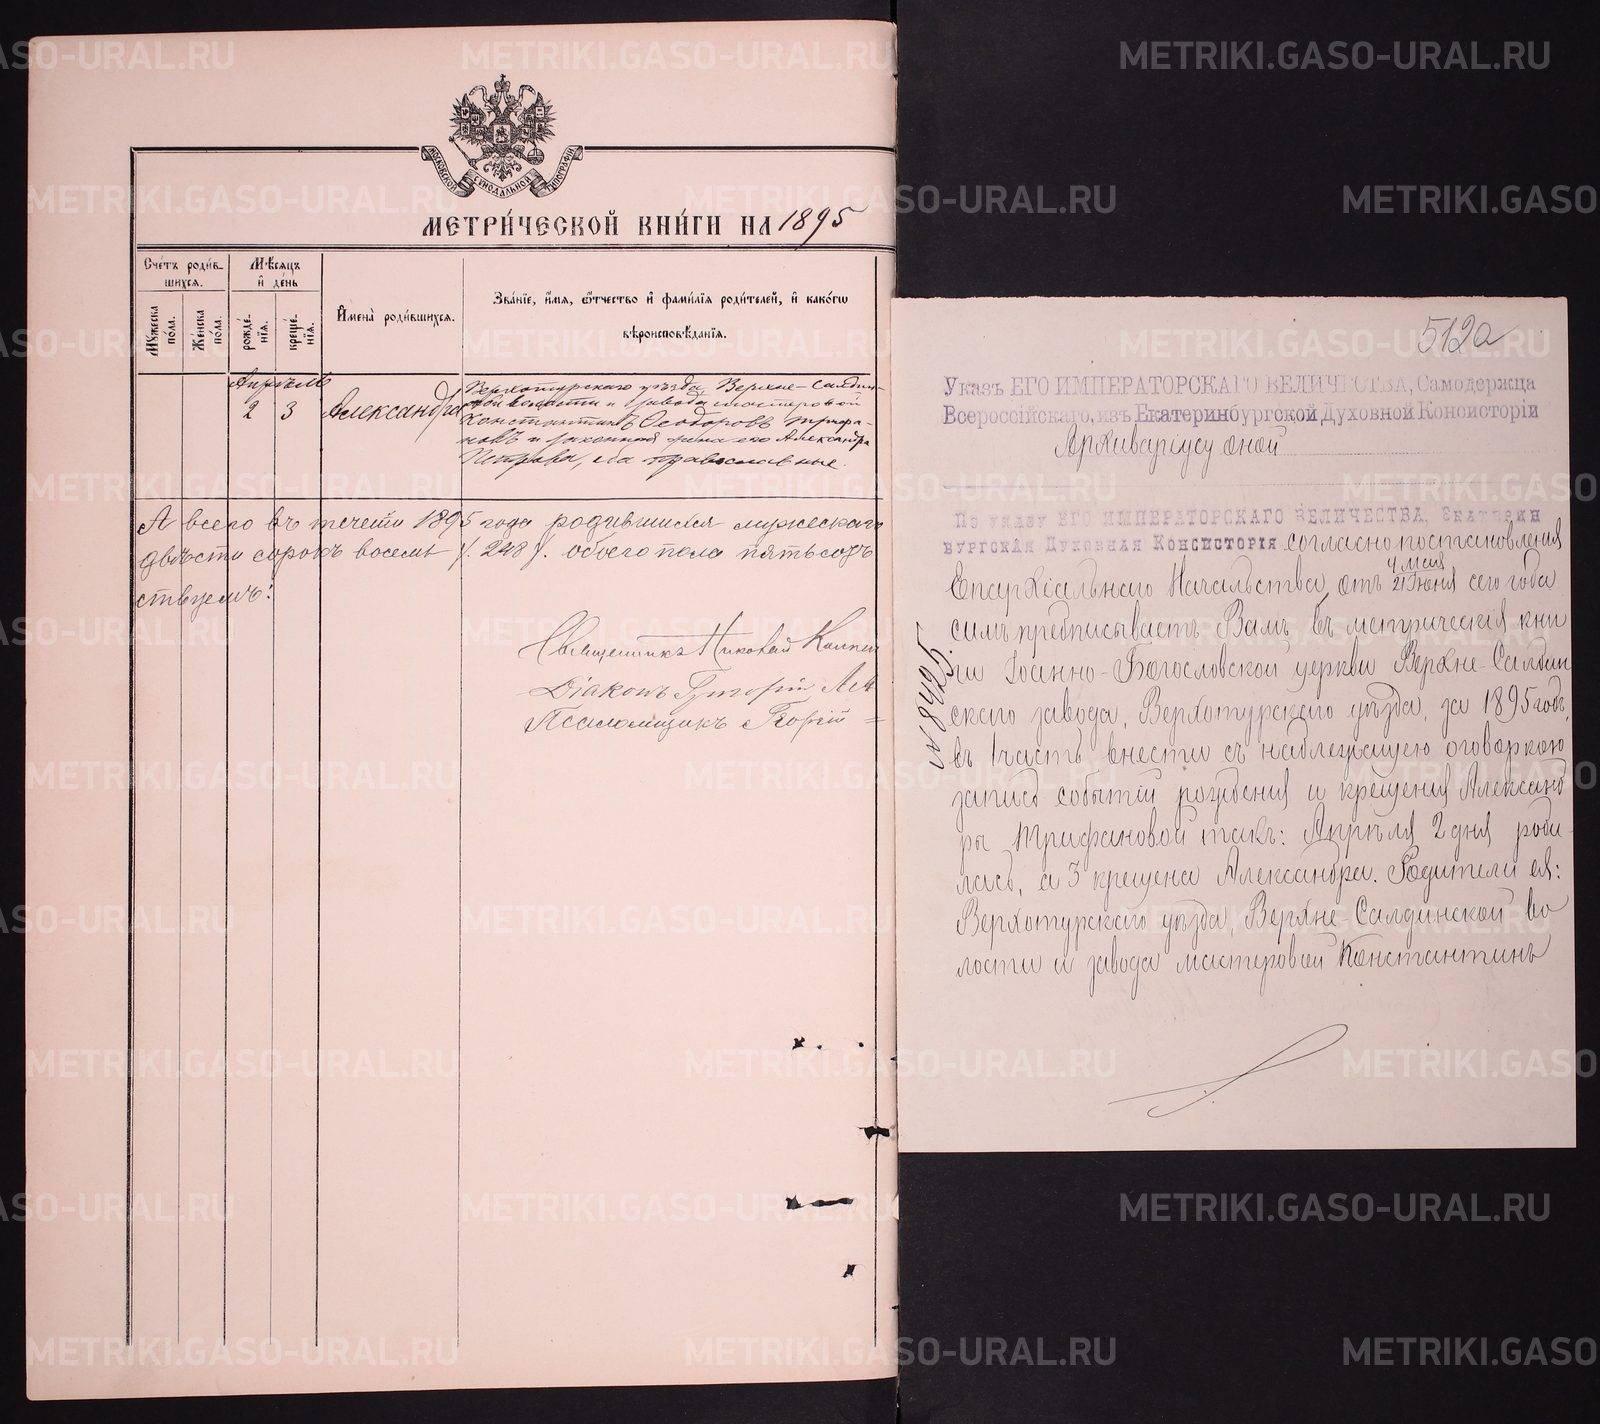 МОСКОВСКОЙ СѴНОДАЛЬНОЙ ТИПОГРАФІИ
МЕТРИ́ЧЕСКОЙ КНИ́ГИ НА 1895
Сче́тъ роди́в-
шихся.
Мѣ́сяцъ
и҆ де́нь
Му́жеска по́ла.
Же́нска по́ла.
рожде́-
нїя.
креще́-
нїя.
И҆мена̀ роди́вшихся.
Зва́нїе, и҆́мя, ѻ҆́тчество и҆ фами́лїя роди́телей, и҆ како́гѡ
вѣроисповѣ́данїя.
Апрѣль
2 3 Александра
Верхотурскаго уѣзда, Верхне-Салдин-
ской волости и завода мастеровой
Константинъ Ѳеодоровъ Трифа-
новъ и законная жена его Александра
Петрова, оба православные.
А всего въ теченіи 1895 года родившихся мужескаго
двѣсти сорокъ восемь /. 248 /. обоего пола пятьсотъ
ствуемъ:
Священникъ Николай
Діаконъ Григорій
Псаломщикъ Георгій
512а
Указъ ЕГО ИМПЕРАТОРСКАГО ВЕЛИЧЕСТВА, Самодержца
Всероссійскаго, изъ Екатеринбургской Духовной Консисторіи
Архиваріусу оной
По указу ЕГО ИМПЕРАТОРСКАГО ВЕЛИЧЕСТВА, Екатерин
бургская Духовная Консисторія согласно постановленія
Епархіальнаго Начальства отъ 4 Мая / 21 Іюня сего года
симъ предписываетъ Вамъ въ метрическія кни
ги Іоанно-Богословской церкви Верхне-Салдин
скаго завода, Верхотурскаго уѣзда, за 1895 годъ,
въ 1 часть, внести съ надлежащею оговоркою
запись событій рожденія и крещенія Александ
ры Трифановой такъ: Апрѣля 2 дня роди-
лась, а 3 крещена Александра. Родители ея:
Верхотурскаго уѣзда, Верхне-Салдинской во
лости и завода мастеровой Константинъ
№ 8425.
METRIKI.GASO-URAL.RU